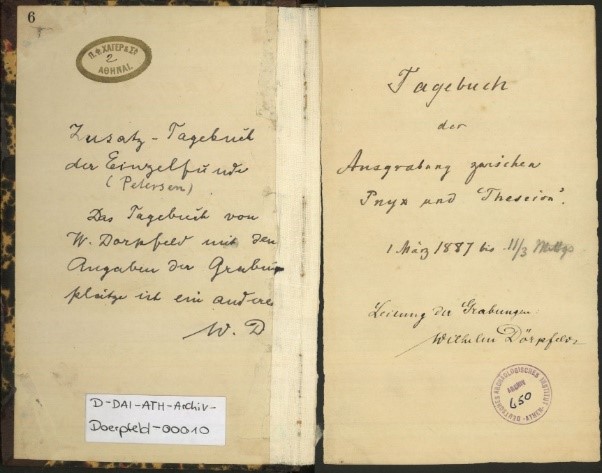 6
Π. Φ. ΧΑΓΕΡ & Σα
2
ΑΘΗΝΑΙ
Zusatz-Tagebuch
der Einzelfunde
(Petersen)
Das Tagebuch von
W. Dörpfeld mit den
Angaben der Grabungs
plätze ist ein anderes
W. D
D-DAI-ATH-Archiv-
Doerpfeld-00010
Tagebuch
der
Ausgrabung zwischen
Pnyx und "Theseion".
1 März 1887 bis 11/3
Leitung der Grabungen
Wilhelm Dörpfeld
DEUTSCHES ARCHÄOLOGISCHES INSTITUT ATHEN
ARCHIV
650